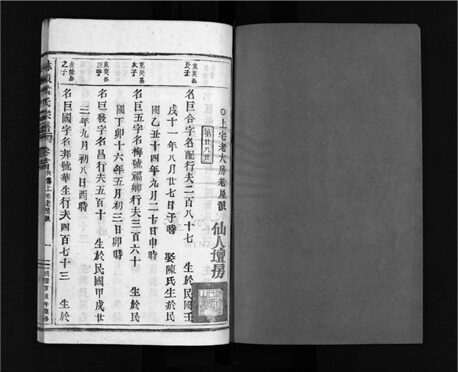 ○上宅老大房老屋派 仙人壇房
第廿八世
克奕公長子
名巨合字名配行夫二百八十七 生於民國壬
戌十一年八月廿七日子時 娶陳氏生於民
國乙丑十四年九月二十日申時
克奕公次子
名巨五字名梅號福卿行夫三百六十 生於民
國丁卯十六年五月初三日卯時
三子
名巨發字名昌行夫五百十 生於民國甲戌廿
三年九月初八日酉時
之子
名巨國字名邦號華生行夫四百七十三 生於